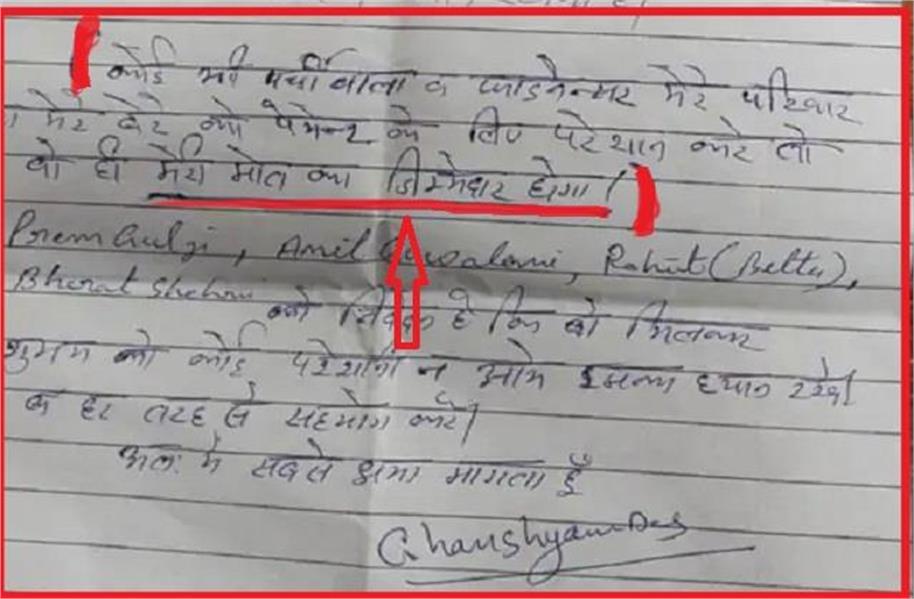 कोई भी पर्ची वाला व फाइनेन्सर मेरे परिवार
या मेरे बेटे को पेमेन्ट के लिए परेशान करे तो
वो ही मेरी मौत का जिम्मेदार होगा।
Prem Gulji, Amit, Rohit (Belta),
Bharat
को निवेदन है कि वो मिलकर
शुभम को कोई परेशानी न आये इसका ध्यान रखे।
व हर तरह से सहयोग करे।
अतः मैं सबसे क्षमा मांगता हूँ
Ghanshyam Das